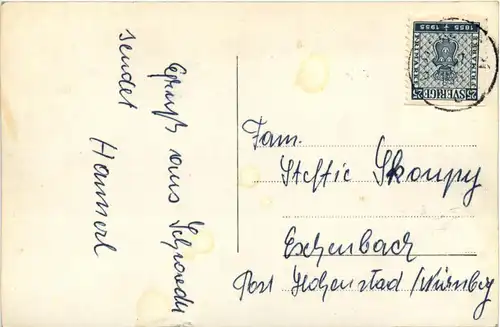 Gruß aus Schweden
sendet
Hannerl
Fam.
Steffie Skoupy
Eschenbach
Post Hohenstad/Nürnberg
1855 1955
25 SVERIGE 25